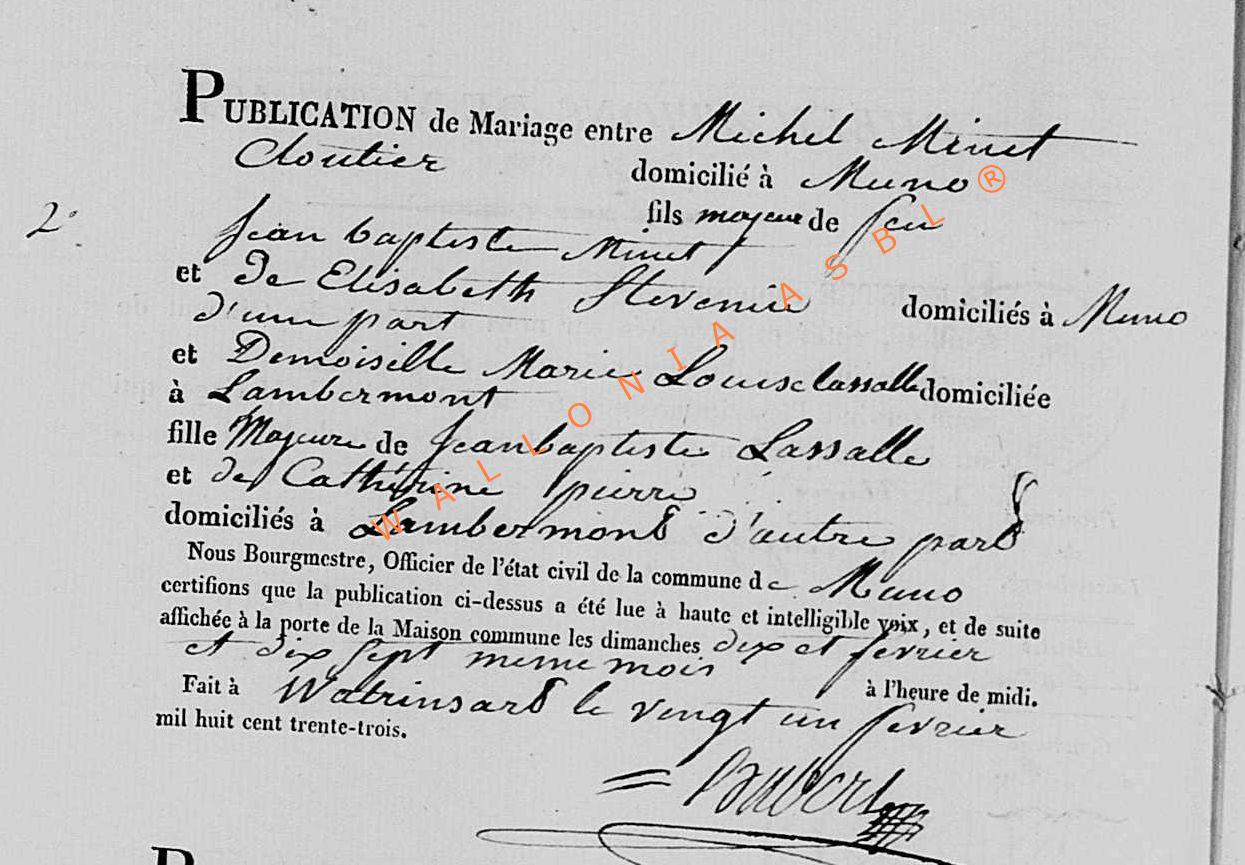 PUBLICATION de Mariage entre Michel Minet
Cloutier domicilié à Muno
2° fils majeur de feu
Jean baptiste Minet
et de Elisabeth Stevenin domiciliés à Muno
d'une part
et Demoiselle Marie Louise Lassalle domiciliée
à Lambermont
fille Majeure de Jean baptiste Lassalle
et de Cathérine pierre
domiciliés à Lambermont d'autre part
Nous Bourgmestre, Officier de l'état civil de la commune de Muno
certifions que la publication ci-dessus a été lue à haute et intelligible voix, et de suite
affichée à la porte de la Maison commune les dimanches dix et fevrier
et dix sept meme mois à l'heure de midi.
Fait à Watrinsart le vingt un fevrier
mil huit cent trente-trois.
WALLONIA ASBL ®